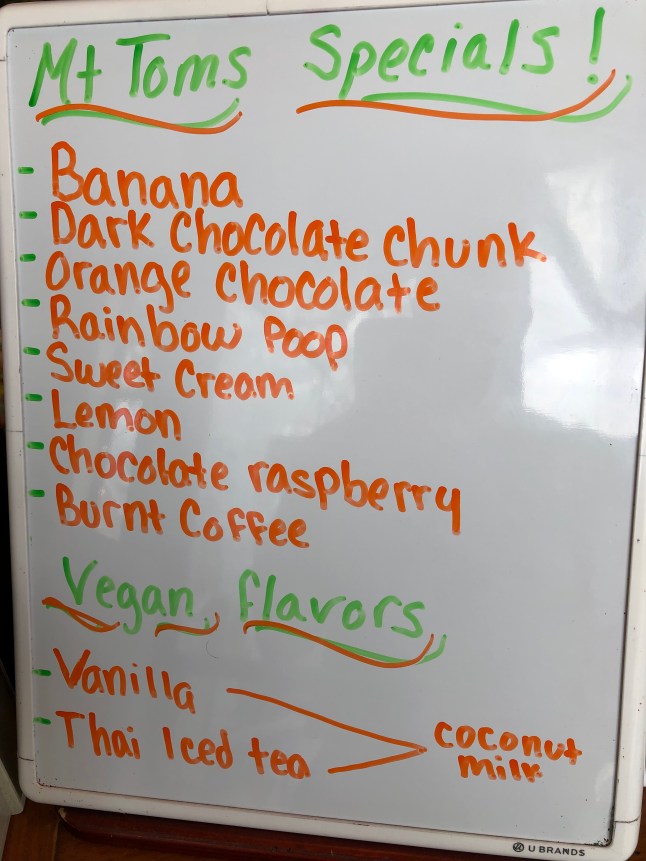 Mt Toms Specials!
- Banana
- Dark Chocolate Chunk
- Orange Chocolate
- Rainbow Poop
- Sweet Cream
- Lemon
- Chocolate raspberry
- Burnt Coffee
Vegan flavors
- Vanilla
- Thai Iced tea
coconut
milk
U BRANDS